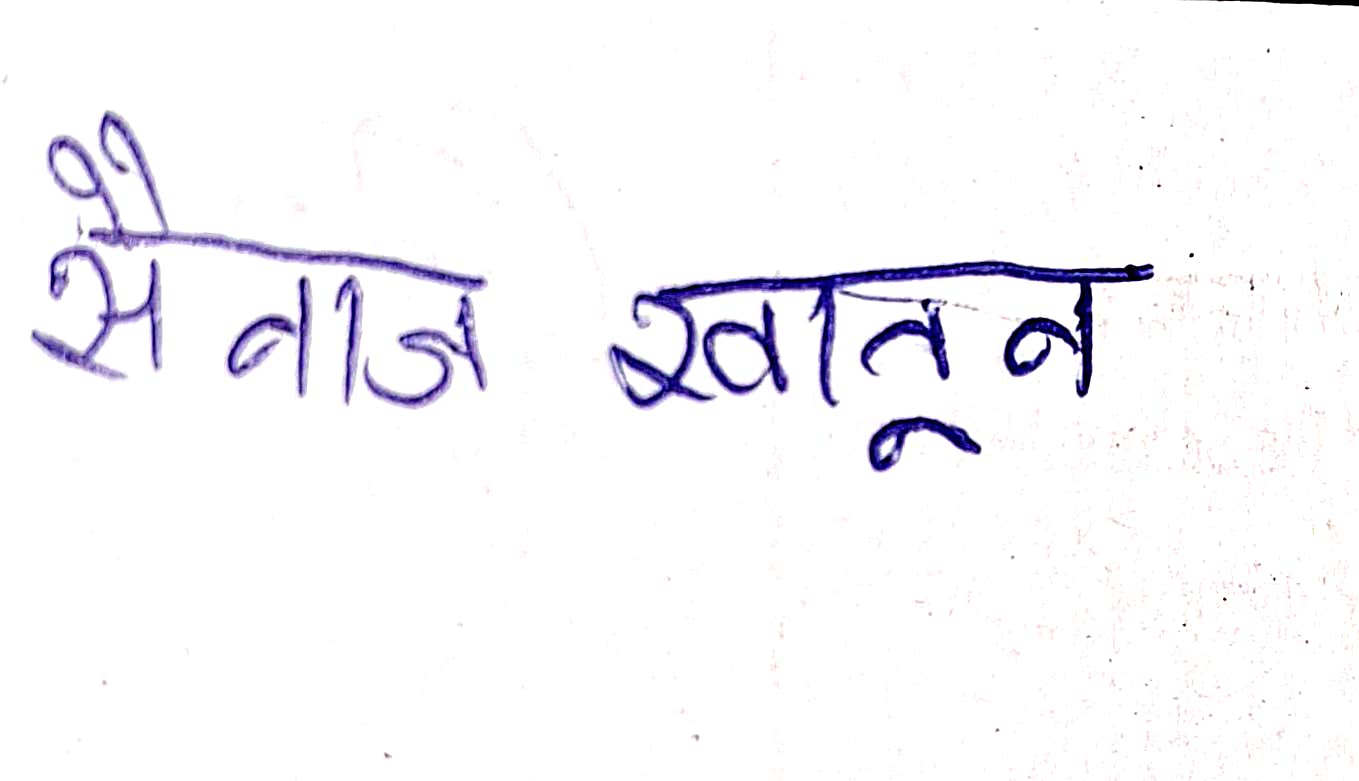 सैनाज खातून